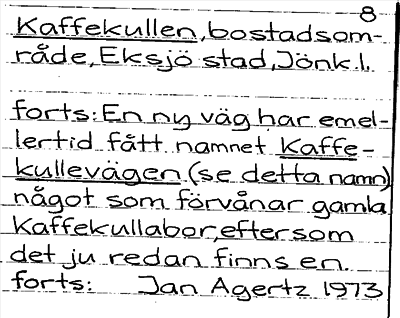 8
Kaffekullen, bostadsom-
råde, Eksjö stad, Jönk.l.
forts: En ny väg har emel-
lertid fått namnet Kaffe-
kullevägen (se detta namn)
något som förvånar gamla
Kaffekullabor, eftersom
det ju redan finns en.
forts: Jan Agertz 1973